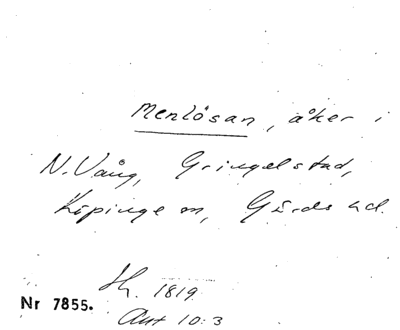 Menlösan, åker i
N. Vång, Gringelstad,
Köpinge sn, Gärds hd.
Sk. 1819
Nr 7855.
Akt 10:3